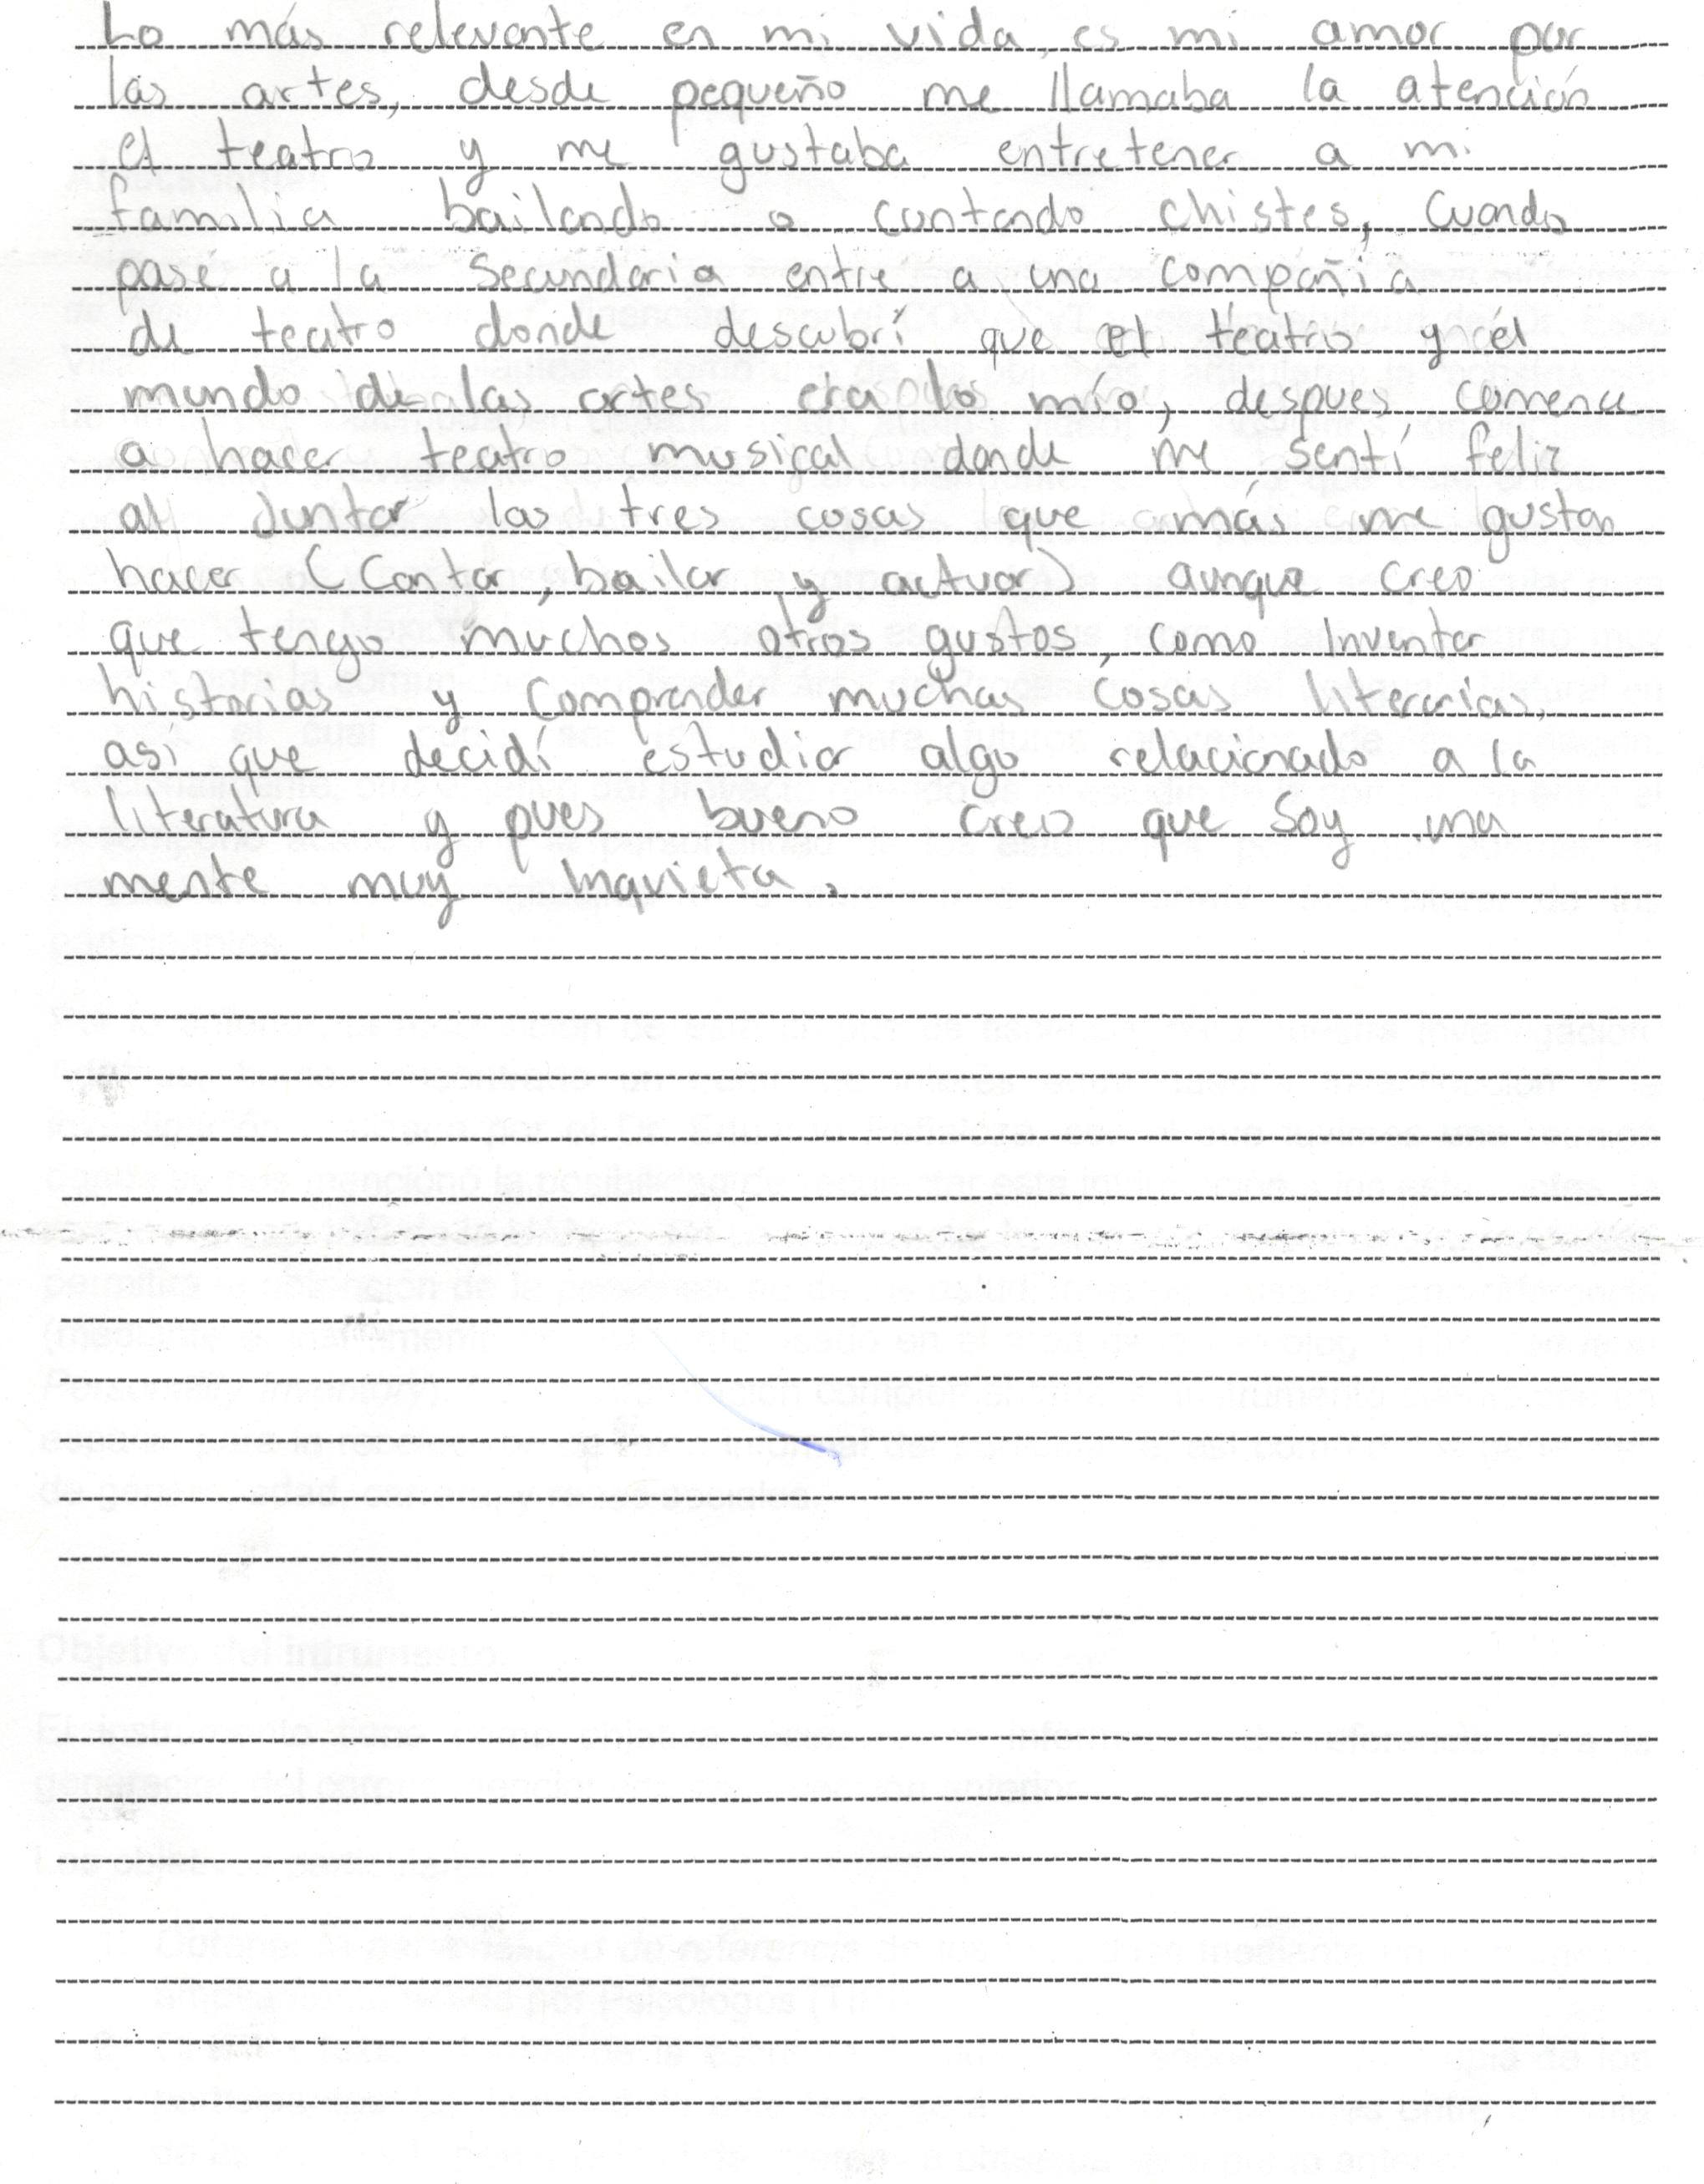 Lo más relevante en mi vida, es mi amor por
las artes, desde pequeño me llamaba la atención
el teatro y me gustaba entretener a mi
familia bailando o contando chistes, Cuando
pasé a la Secundaria entre a una compañia
de teatro donde descubrí que el teatro y el
mundo de las artes era lo mío, despues comence
a hacer teatro musical donde me sentí feliz
al Juntar las tres cosas que más me gustan
hacer (Cantar, bailar y actuar) aunque creo
que tengo muchos otros gustos, como Inventar
historias y Comprender muchas cosas literarias,
asi que decidí estudiar algo relacionado a la
literatura y pues bueno creo que Soy una
mente muy Inquieta.